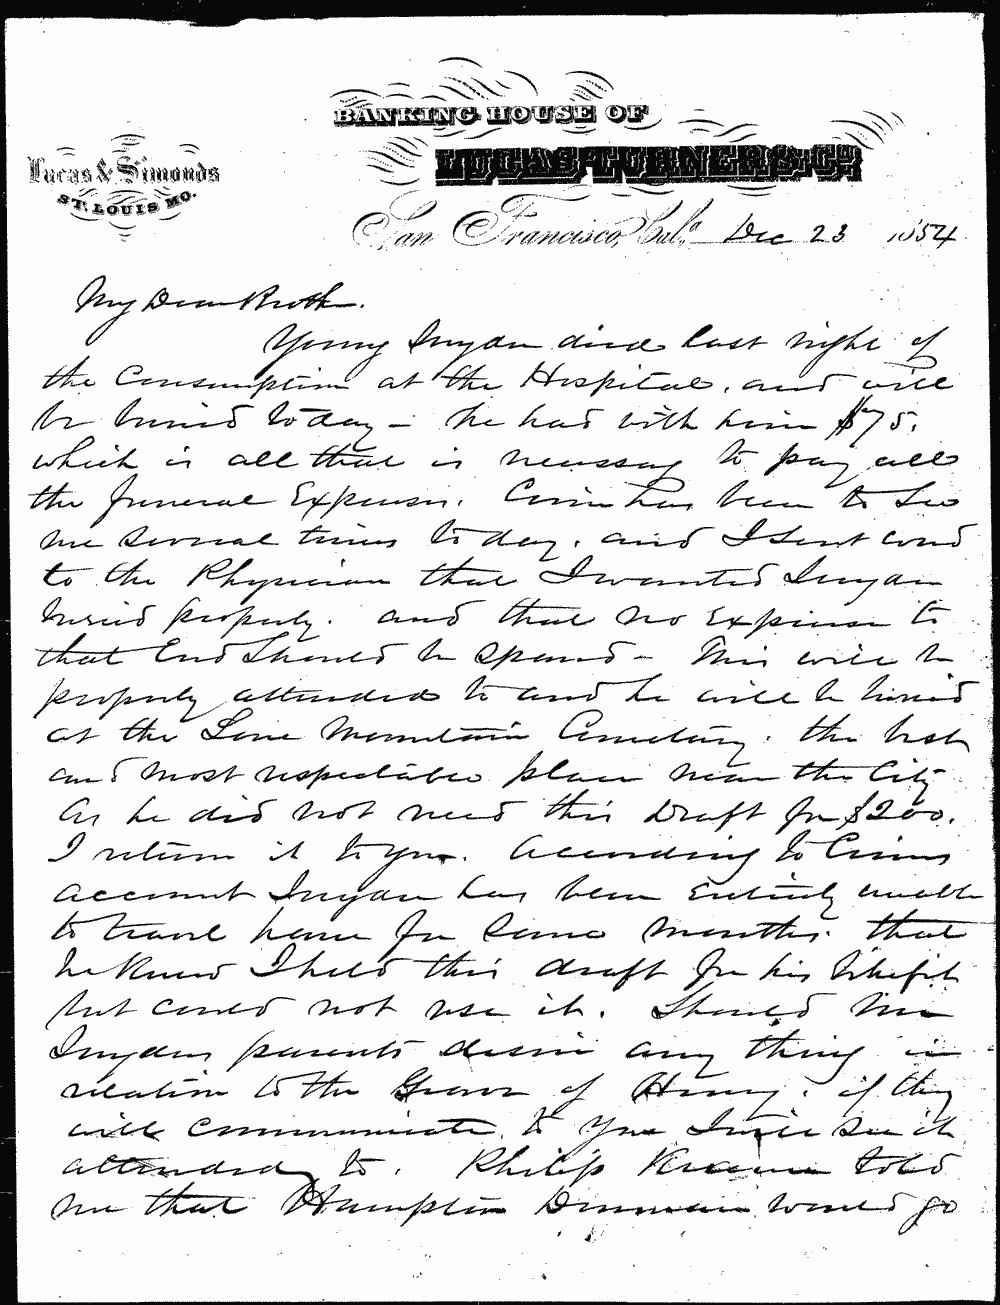 BANKING HOUSE OF
LUCAS TURNER & Co.
Lucas & Simonds
ST. LOUIS MO.
San Francisco, Cal., Dec 23 1854
My Dear Broth.
Young died last night of
the Consumption at the Hospital, and will
be buried today - he had with him $75.
which is all that is necessary to pay all
the funeral Expenses. has been to see
me several times today, and I sent word
to the Physician that I wanted
buried properly. and that no Expense to
that End should be spared - This will be
properly attended to and he will be buried
at the Lone Mountain Cemetery. the best
and most respectable place near the City
As he did not need this Draft for $200.
I return it to you. According to
account has been Entirely unable
to travel home for some months. that
he knew I held this draft for his benefit
but could not use it. Should
parents desire any thing in
relation to the Grave of Henry, if they
will communicate to you I will see it
attended to. Philip told
me that Hampton would go